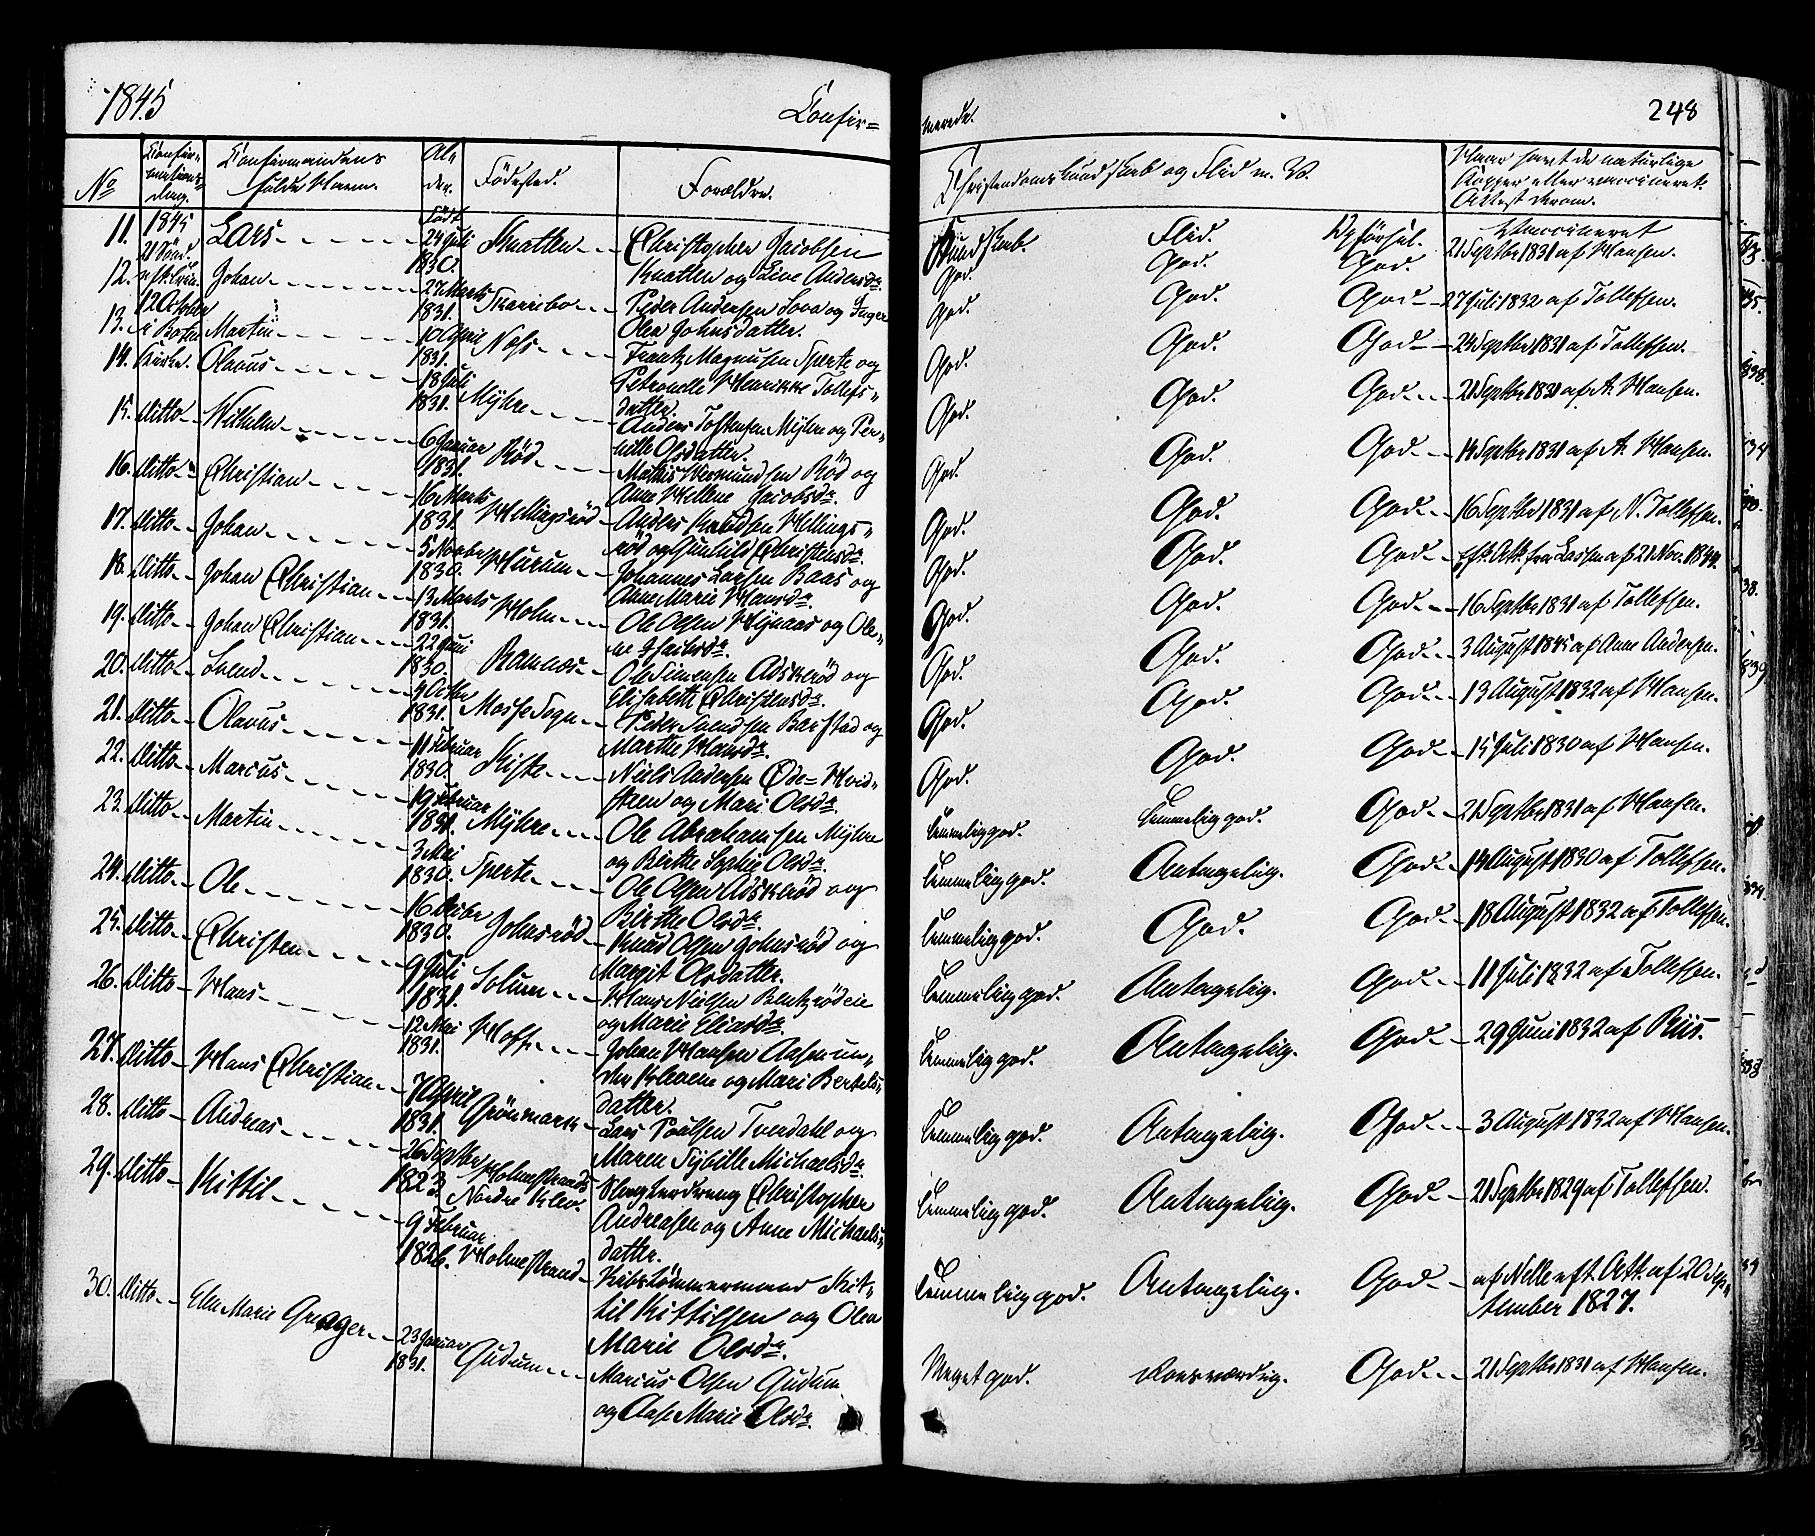 1845
Confir=
merede.
248
No
Confir-
mations-
dag.
Confirmandens
fulde Navn.
Al-
der.
Födested.
Forældre.
Christendomskundskab og Flid m. V.
Naar havt de naturlige
Kopper eller vaccineret.
Attest derom.
11. 1845 Lars Födt 24 Juli 1830. Knatten Christopher Jacobsen
Knatten og Live Andersdr.
Kundskab. God. Flid. God. Opförsel. God. Vaccineret 21 Septbr 1831 af Hansen.
21 Sönd.
12 October
i Botne
Kirke.
12. Johan 27 Marts 1831. Skarribo Peder Andersen Sova og Inger
Olea Johnsdatter.
God. God. God 27 Juli 1832 af Tollefsen.
13. Martin 10 April 1831. Næs Frantz Magnusen Sperte og
Petronelle Henrikke Tollefs-
datter.
God. God. God 24 Septbr 1831 af Tollefsen.
14. Olavus 18 Juli 1831. Myhre Anders Tostensen Myhre og Per-
nille Olsdatter.
God. God. God 21 Septbr 1831 af A. Hansen.
15. Ditto Wilhelm 6 Januar 1831. Röd Mathis Wermundsen Röd og
Anne Hellene Jacobsdr.
God. God. God 14 Septbr 1831 af A. Hansen.
16. Ditto Christian 16 Marts 1831. Hellingsröd Anders Knudsen Hellings-
röd og Gunhild Christensdr.
God. God. God 16 Septbr 1831 af N. Tollefsen.
17. Ditto Johan 5 Novbr 1830. Hurum Johannes Larsen Baas og
Anne Marie Hansdr.
God. God. God eft. Att. fra Lassen af 21 Nov. 1844.
18. Ditto Johan Christian 13 Marts 1831. Holm Ole Olsen Hynaas og Ole-
ne
God. God. God 16 Septbr 1831 af Tollefsen.
19. Ditto Johan Christian 22 Juni 1830. Ramnæs Ole Simensen Adskeröd og
Elisabeth Christensdr.
God. God. God 3 August 1845 af Anne Andersen.
20. Ditto Svend 4 Octbr 1831. Mosse Sogn Peder Svendsen Barstad og
Marthe Hansdr.
God. God. God 13 August 1832 af Hansen.
21. Ditto Olavus 11 Februar 1830. Kiste Niels Andersen Öde-Hvid-
steen og Mari Olsdr.
God. God. God 15 Juli 1830 af Hansen.
22. Ditto Marcus 19 Februar 1831. Myhre Ole Abrahamsen Myhre
og Birthe Sophie Olsdr.
Temmelig god. Temmelig god. God 21 Septbr 1831 af Hansen.
23. Ditto Martin 3 Mai 1830. Sperte Ole Olsen Adskeröd og
Birthe Olsdr.
Temmelig god. Antagelig. God 14 August 1830 af Tollefsen.
24. Ditto Ole 16 Decbr 1830. Johnsröd Knud Olsen Johnsröd og
Margit Olsdatter.
Temmelig god. God. God 18 August 1832 af Tollefsen.
25. Ditto Christen 9 Juli 1831. Solum Hans Nielsen Bentzrödeie
og Marie Eliasdr.
Temmelig god. Antagelig. God 11 Juli 1832 af Tollefsen.
26. Ditto Hans 12 Mai 1831. Hoff Johan Hansen Aasmun-
den Kleven og Mari Bertels-
datter.
Temmelig god. Antagelig. God 29 Juni 1832 af Riis.
27. Ditto Hans Christian 7 April 1831. Grönmark Lars Poulsen Tverdahl og
Maren Sybille Michaelsdr.
Temmelig god. Antagelig. God 3 August 1832 af Hansen.
28. Ditto Andreas 26 Septbr 1823. Holmestrands
Nordre Klev. Christopher
Andreasen og Anne Michaels-
datter.
Temmelig god. Antagelig. God 21 Septbr 1829 af Tollefsen.
29. Ditto Kittil 9 Februar 1826. Holmestrand Skibstömmermand Kit-
til Kittilsen og Olea
Marie Olsdr.
Temmelig god. Antagelig. God af Nelle eft. Att. af 20 Sep-
tember 1827.
30. Ditto Elen Marie Gunager 23 Januar 1831. Gudum Marcus Olsen Gudum
og Aase Marie Olsdr.
Meget god. Roesværdig. God 21 Septbr 1831 af Hansen.